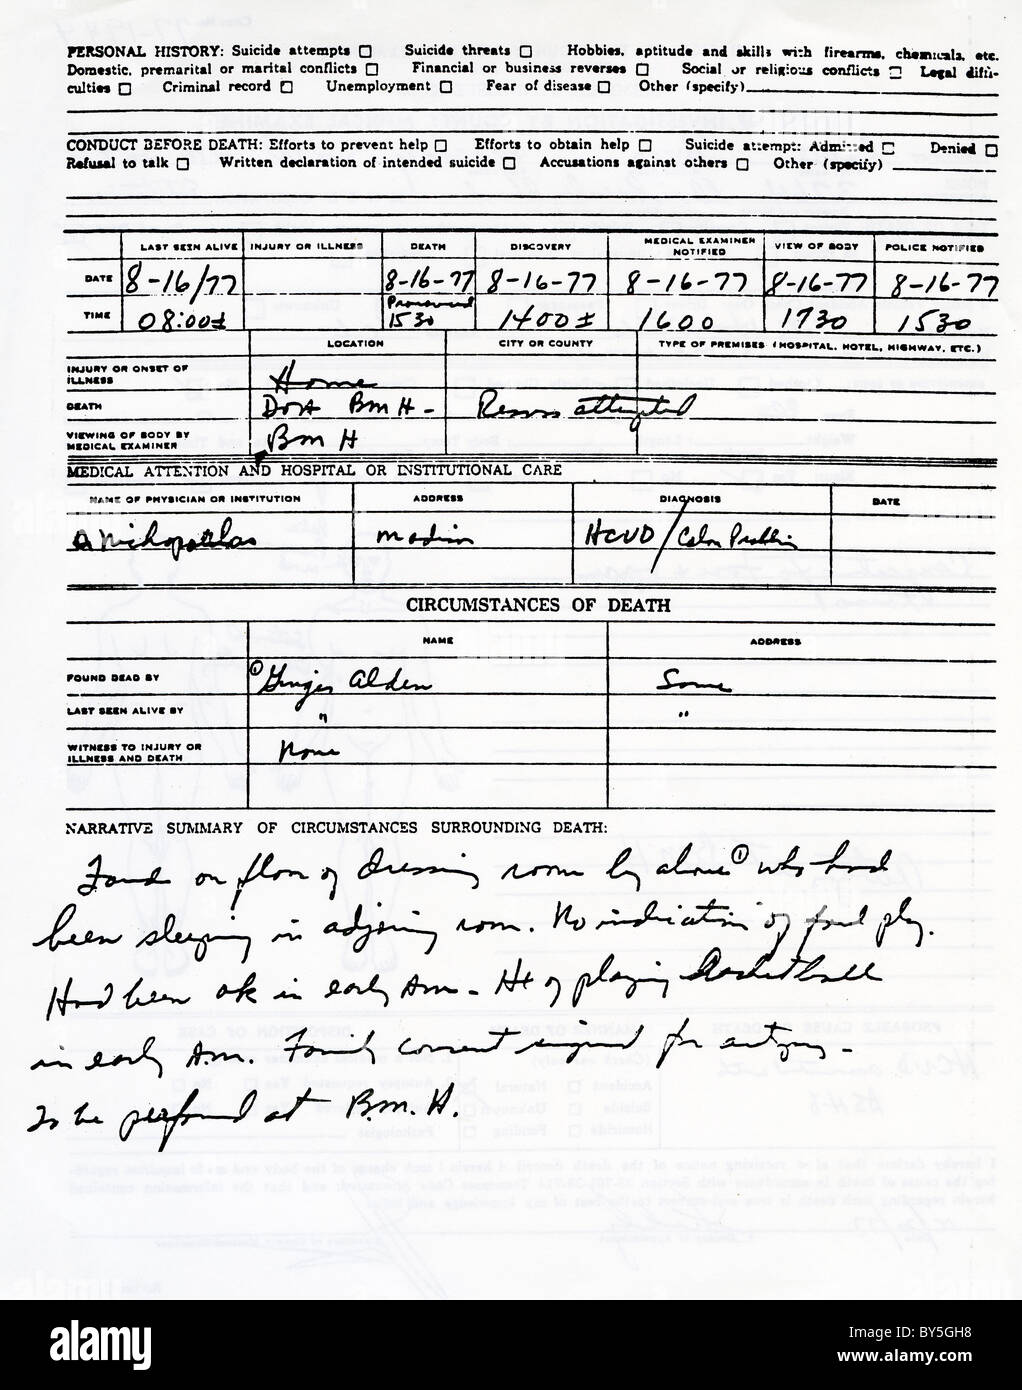 PERSONAL HISTORY: Suicide attempts □ Suicide threats □ Hobbies, aptitude and skills with firearms, chemicals, etc.
Domestic, premarital or marital conflicts □ Financial or business reverses □ Social or religious conflicts □ Legal diffi-
culties □ Criminal record □ Unemployment □ Fear of disease □ Other (specify)
CONDUCT BEFORE DEATH: Efforts to prevent help □ Efforts to obtain help □ Suicide attempt: Admitted □ Denied □
Refusal to talk □ Written declaration of intended suicide □ Accusations against others □ Other (specify)
LAST SEEN ALIVE INJURY OR ILLNESS DEATH DISCOVERY MEDICAL EXAMINER NOTIFIED VIEW OF BODY POLICE NOTIFIED
DATE 8-16/77 8-16-77 8-16-77 8-16-77 8-16-77 8-16-77
TIME 08:00± Pronounced 1530 1400± 1600 1730 1530
LOCATION CITY OR COUNTY TYPE OF PREMISES (HOSPITAL, HOTEL, HIGHWAY, ETC.)
INJURY OR ONSET OF ILLNESS Home
DEATH DOA BMH - Resus attempted
VIEWING OF BODY BY MEDICAL EXAMINER BMH
MEDICAL ATTENTION AND HOSPITAL OR INSTITUTIONAL CARE
NAME OF PHYSICIAN OR INSTITUTION ADDRESS DIAGNOSIS DATE
Nichopoulos Madison HCVD / Colon Problem
CIRCUMSTANCES OF DEATH
NAME ADDRESS
FOUND DEAD BY ① Ginger Alden Same
LAST SEEN ALIVE BY " "
WITNESS TO INJURY OR ILLNESS AND DEATH None
NARRATIVE SUMMARY OF CIRCUMSTANCES SURROUNDING DEATH:
Found on floor of dressing room by above ① who had
been sleeping in adjoining room. No indication of foul play.
Had been ok in early Am - Hx of playing basketball
in early Am. Family consent signed for autopsy -
To be performed at B.M.H.
alamy
Image ID: BY5GH8
www.alamy.com